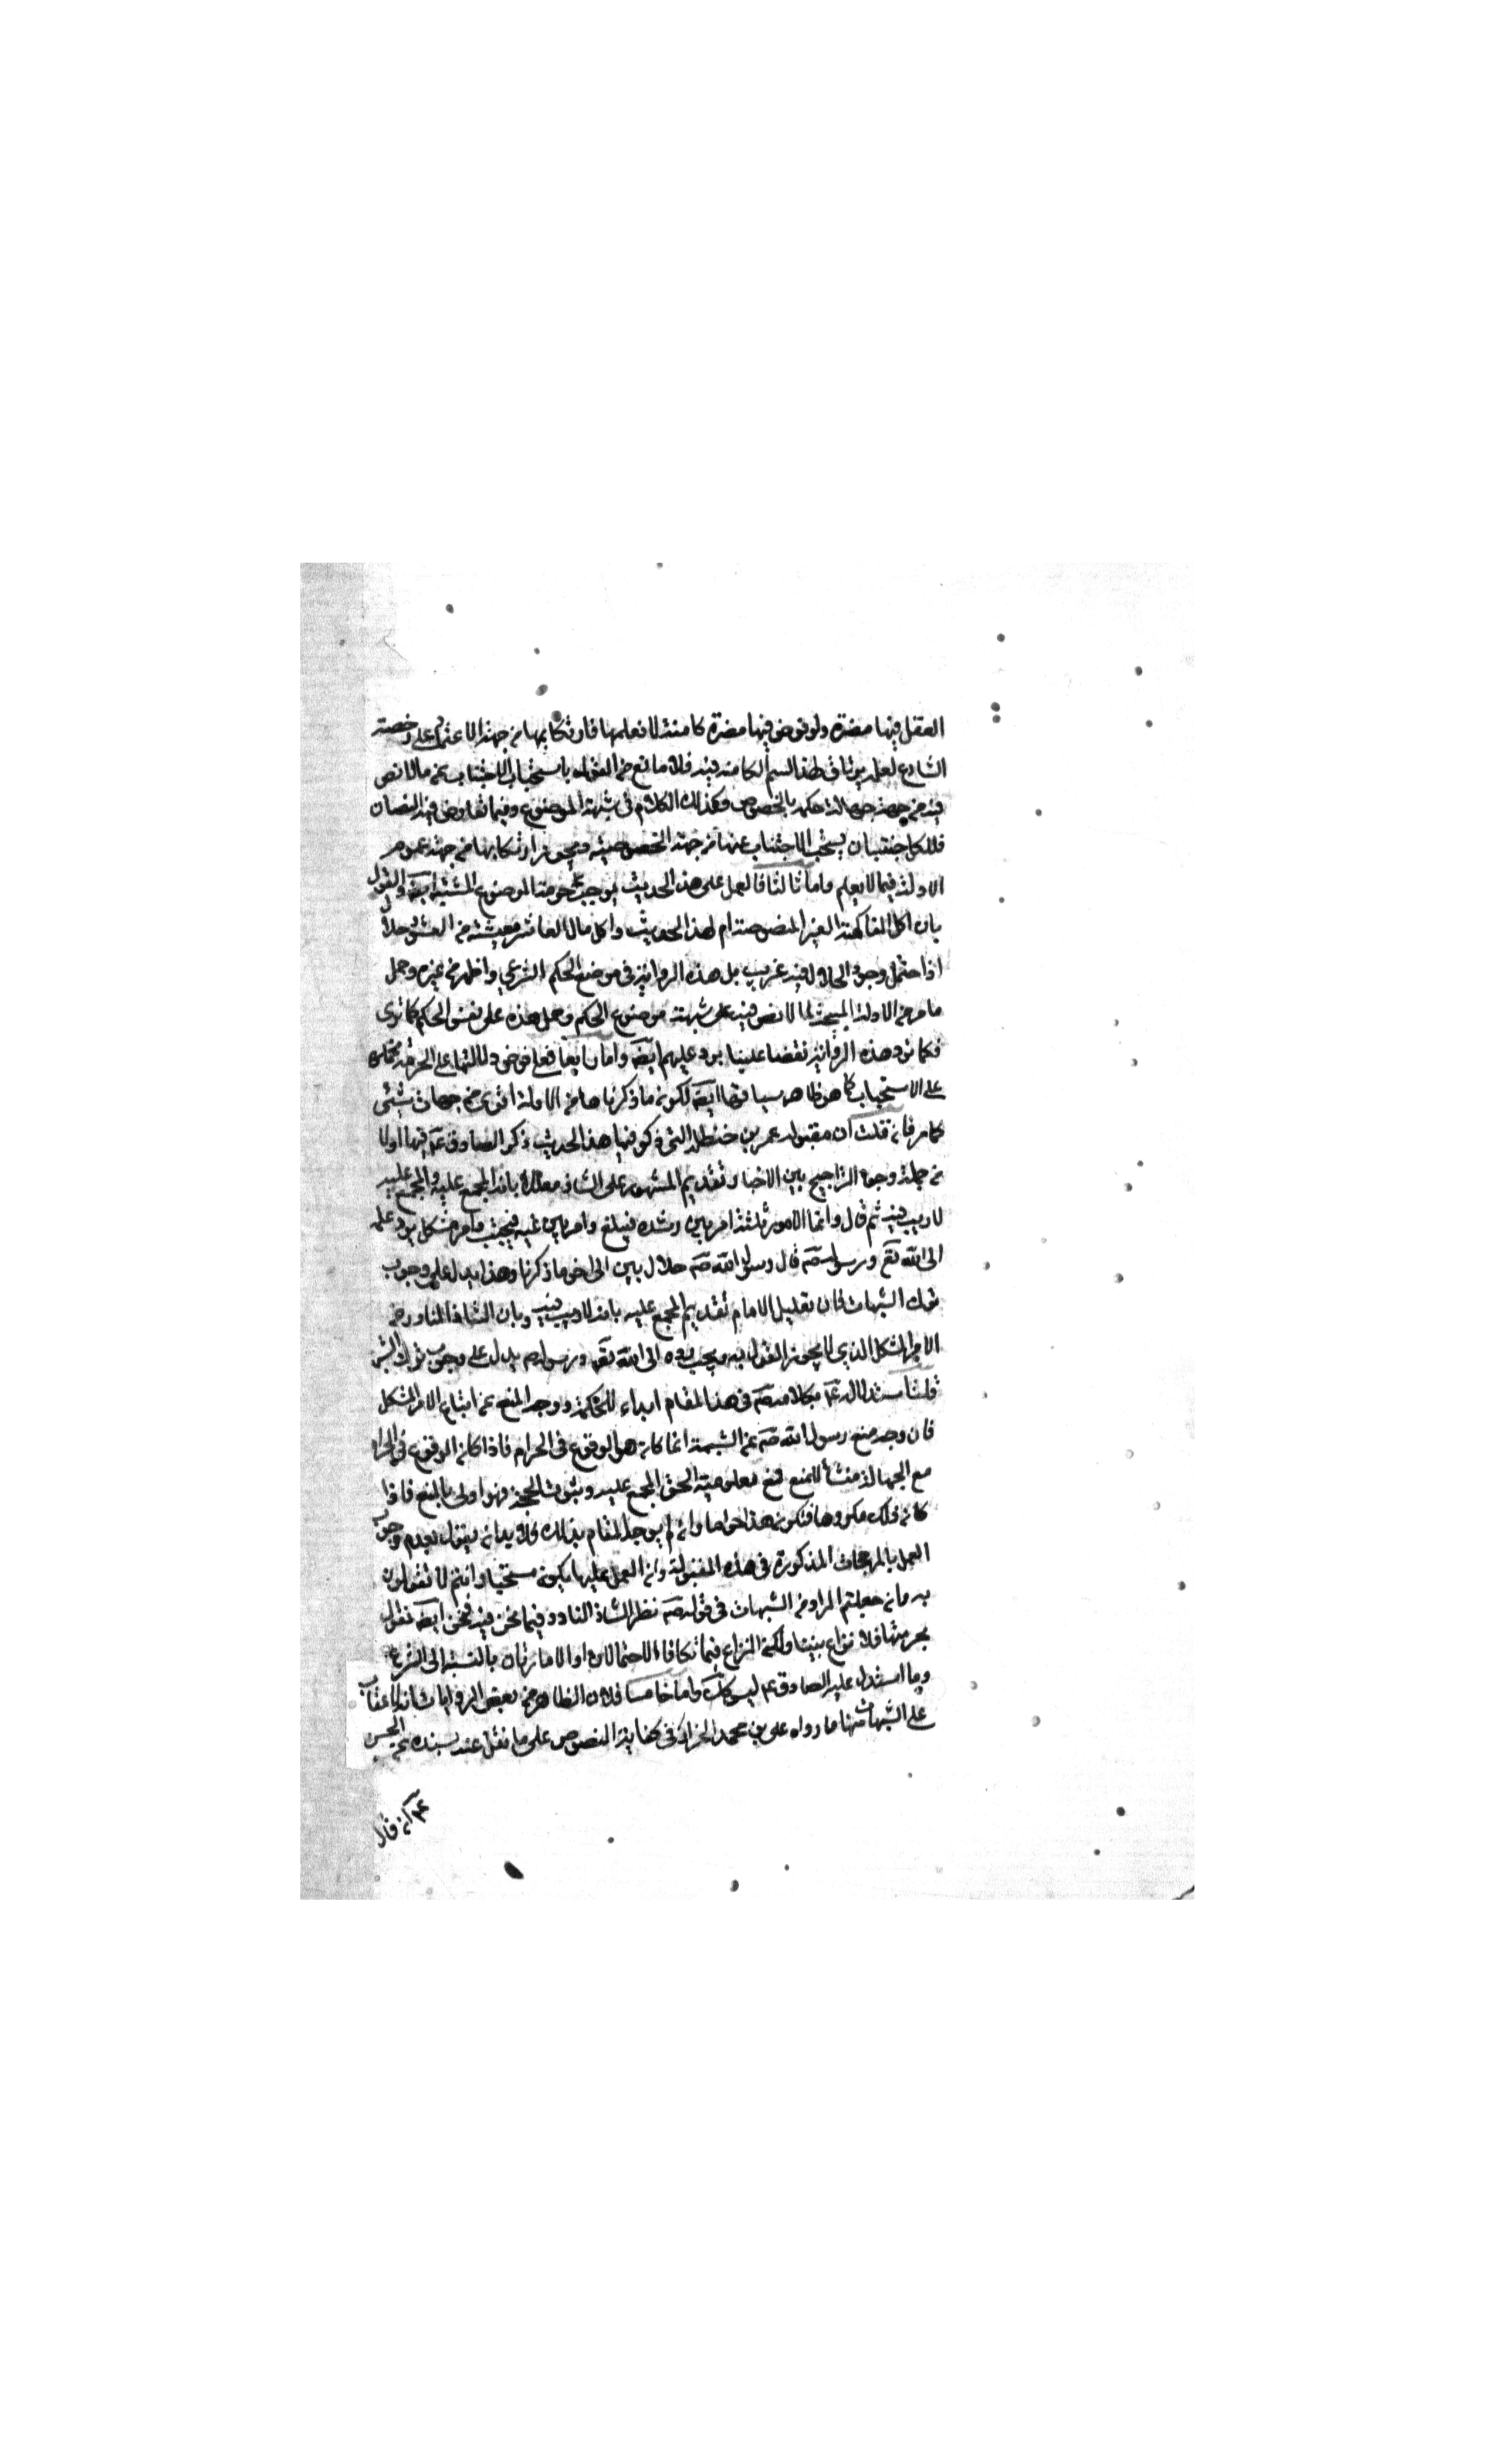 العقل فيها مضرة ولو فرض فيها مضرة كامنة لا نعلمها فارتكابها من جهة الاعتماد على رخصة
الشارع لعله يتافى هذا السم الكامنة فيه فلا مانع من القول باستحباب الاجتناب عن ما لا نص
فيه من جهة جهالة حكمه بالخصوص وكذلك الكلام في شبهة الموضوع وفيما تعارض فيه النصان
فللكل جنبتان يستحب الاجتناب عنها من جهة الخصوصية ويجوز ارتكابها من جهة عموم
الادلة فيما لا يعلم واما ثالثا فالعمل على هذا الحديث يوجب حرمة الموضوع المشتبه ايضا والقول
بان اكل الفاكهة الغير المنصوصة ام لهذا الحديث واكل مال العاشر معيشة من العشور حلال
اذا احتمل وجود الحلال فيه غريب بل هذه الرواية في موضع الحكم الشرعي واظهر من غيره وحمل
ما مر من الادلة المبيحة لما لا نص فيه على شبهة موضوع الحكم وحمل هذه على نفس الحكم كما ترى
فكما ترد هذه الرواية نقضا علينا يرد عليهم ايضا واما رابعا فعلى فرض دلالتها على الحرمة تحمل
على الاستحباب كما هو ظاهر سياقها ايضا لكون ما ذكرناها من الادلة اقوى من جهات شتى
كما مر فان قلت ان مقبولة عمر بن حنظلة التي ذكر فيها هذا الحديث ذكر الصادق ع فيها اولا
من جملة وجوه التراجيح بين الاخبار تقديم المشهور على الشاذ معللا بانه المجمع عليه والمجمع عليه
لا ريب فيه ثم قال وانما الامور ثلثة امر بين رشده فيتبع وامر بين غيه فيجتنب وامر مشكل يرد علمه
الى الله تع ورسوله ص قال رسول الله ص حلال بين الى اخر ما ذكرنا وهذا يدل على وجوب
ترك الشبهات فان تعليل الامام تقديم المجمع عليه بانه لا ريب فيه وبان الشاذ النادر من
الامر المشكل الذي لا يجوز القول به ويجب رده الى الله تع ورسوله ص يدل على وجوب ترك الشبهة
قلنا استدلاله ع بكلامه ص في هذا المقام ابداء للحكمة ووجه المنع عن اتباع الامر المشكل
فان وجه منع رسول الله ص عن الشبهة انما كان هو الوقوع في الحرام فاذا كان الوقوع في الحرام
مع الجهالة منشأ للمنع فمع معلومية الحق المجمع عليه وثبوت الحجة فهو اولى بالمنع فاذا
كان ذلك مكروها فتكون هذا حراما وان لم يوجد المقام بذلك فلابد ان يقول بعدم وجوب
العمل بالمرجحات المذكورة في هذه المقبولة وان العمل عليها يكون مستحبا وانتم لا تقولون
به وان جعلتم المراد من الشبهات في قوله ص نظر الشاذ النادر فيما نحن فيه فنحن ايضا نقول
بحرمتها فلا نزاع بيننا ولكن النزاع فيما تكافأ الاحتمالان او الامارتان بالنسبة الى الشرع
وما استدل عليه الصادق ع ليس كك واما خامسا فلان الظاهر من بعض الروايات انه لا عقاب
على الشبهات منها ما رواه علي بن محمد الخزاز في كفاية النصوص على ما نقل عنه بسنده عن الحسن
ع انه قال